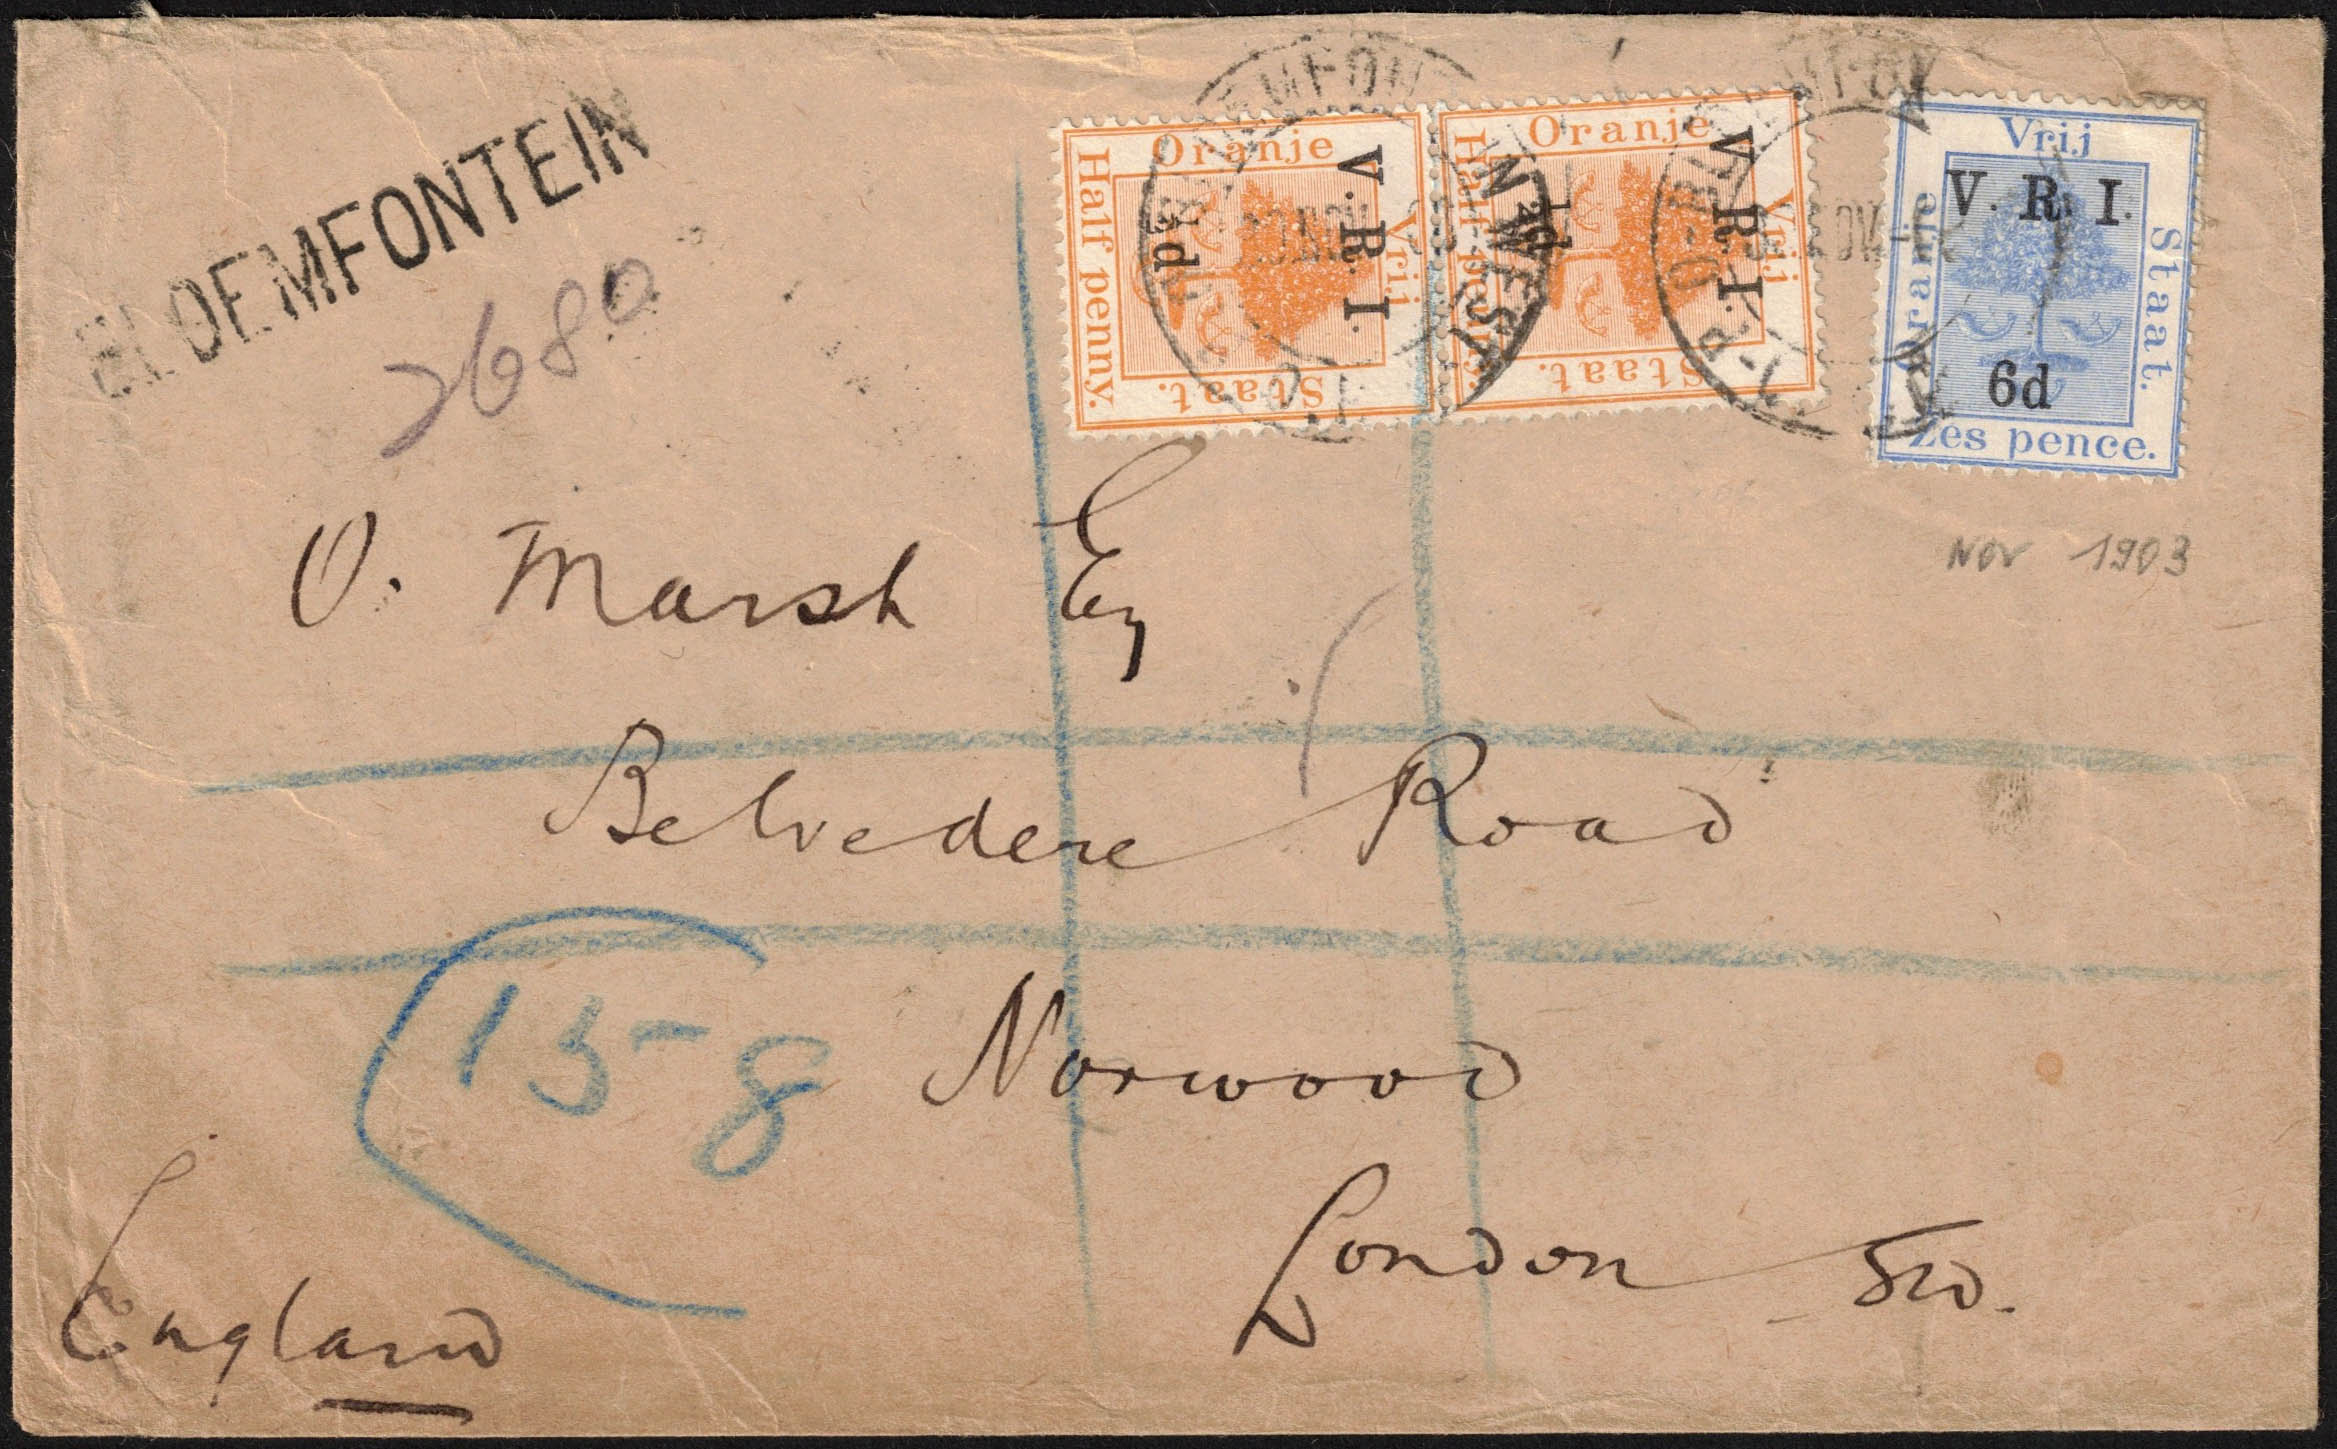 BLOEMFONTEIN
2680
Oranje
Vrij
Staat.
Half penny.
V.R.I.
½d
Oranje
Vrij
Staat.
Half penny.
V.R.I.
½d
Vrij
Oranje
Staat.
Zes pence.
V. R. I.
6d
Nov 1903
O. Marsh Esq
Belvedere Road
Norwood
London SW.
England
15-8